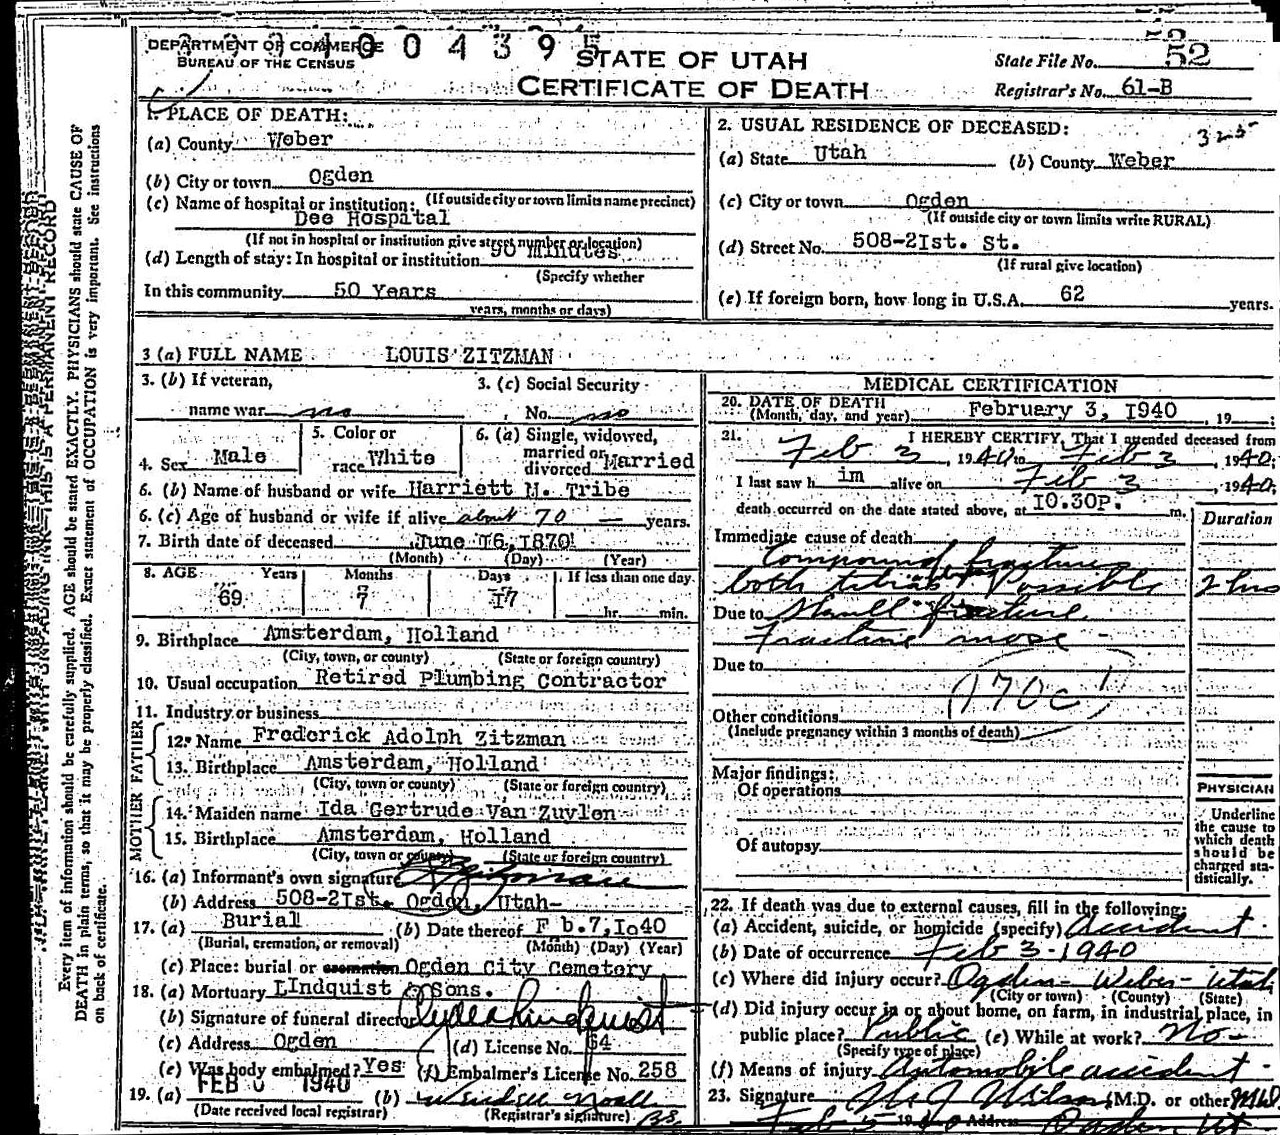 DEPARTMENT OF COMMERCE
BUREAU OF THE CENSUS
0 0 4 3 9 5
STATE OF UTAH
CERTIFICATE OF DEATH
State File No. 52
Registrar's No. 61-B
1. PLACE OF DEATH:
(a) County Weber
(b) City or town Ogden
(If outside city or town limits name precinct)
(c) Name of hospital or institution:
Dee Hospital
(If not in hospital or institution give street number or location)
(d) Length of stay: In hospital or institution 90 Minutes
(Specify whether
In this community 50 Years
years, months or days)
2. USUAL RESIDENCE OF DECEASED:
325
(a) State Utah (b) County Weber
(c) City or town Ogden
(If outside city or town limits write RURAL)
(d) Street No. 508-2Ist. St.
(If rural give location)
(e) If foreign born, how long in U.S.A. 62 years.
3 (a) FULL NAME LOUIS ZITZMAN
3. (b) If veteran,
name war no
3. (c) Social Security
No. no
4. Sex Male
5. Color or
race White
6. (a) Single, widowed,
married or
divorced Married
6. (b) Name of husband or wife Harriett M. Tribe
6. (c) Age of husband or wife if alive about 70 years.
7. Birth date of deceased June I6, I870
(Month) (Day) (Year)
8. AGE Years Months Days If less than one day
69 7 I7 hr. min.
9. Birthplace Amsterdam, Holland
(City, town, or county) (State or foreign country)
10. Usual occupation Retired Plumbing Contractor
11. Industry or business
FATHER
12. Name Frederick Adolph Zitzman
13. Birthplace Amsterdam, Holland
(City, town, or county) (State or foreign country)
MOTHER
14. Maiden name Ida Gertrude Van Zuylen
15. Birthplace Amsterdam, Holland
(City, town or county) (State or foreign country)
16. (a) Informant's own signature
(b) Address 508-2Ist. Ogden, Utah-
17. (a) Burial (b) Date thereof F b.7,Io40
(Burial, cremation, or removal) (Month) (Day) (Year)
(c) Place: burial or cremation Ogden City Cemetery
18. (a) Mortuary LIndquist & Sons.
(b) Signature of funeral director Clyde Lindquist
(c) Address Ogden (d) License No. 64
(e) Was body embalmed? Yes (f) Embalmer's License No. 258
19. (a) FEB 1940 (b)
(Date received local registrar) (Registrar's signature)
MEDICAL CERTIFICATION
20. DATE OF DEATH
(Month, day, and year) February 3, I940, 19 ;
21. I HEREBY CERTIFY, That I attended deceased from
Feb 3, 1940 to Feb 3, 1940;
I last saw h im alive on Feb 3, 1940;
death occurred on the date stated above, at I0.30P. m.
Duration
Immediate cause of death
Compound fracture
both tibias Possible 2 hrs
Due to Skull fracture
Fracture nose
Due to
(170c)
Other conditions
(Include pregnancy within 3 months of death)
Major findings:
Of operations
Of autopsy
PHYSICIAN
Underline
the cause to
which death
should be
charged sta-
tistically.
22. If death was due to external causes, fill in the following:
(a) Accident, suicide, or homicide (specify) Accident
(b) Date of occurrence Feb 3-1940
(c) Where did injury occur? Ogden- Weber- Utah
(City or town) (County) (State)
(d) Did injury occur in or about home, on farm, in industrial place, in
public place? Public (e) While at work? No-
(Specify type of place)
(f) Means of injury Automobile accident
23. Signature Wilson (M.D. or other) M.D.
Feb 5 1940 Address Ogden Ut
Every item of information should be carefully supplied. AGE should be stated EXACTLY. PHYSICIANS should state CAUSE OF
DEATH in plain terms, so that it may be properly classified. Exact statement of OCCUPATION is very important. See instructions
on back of certificate.